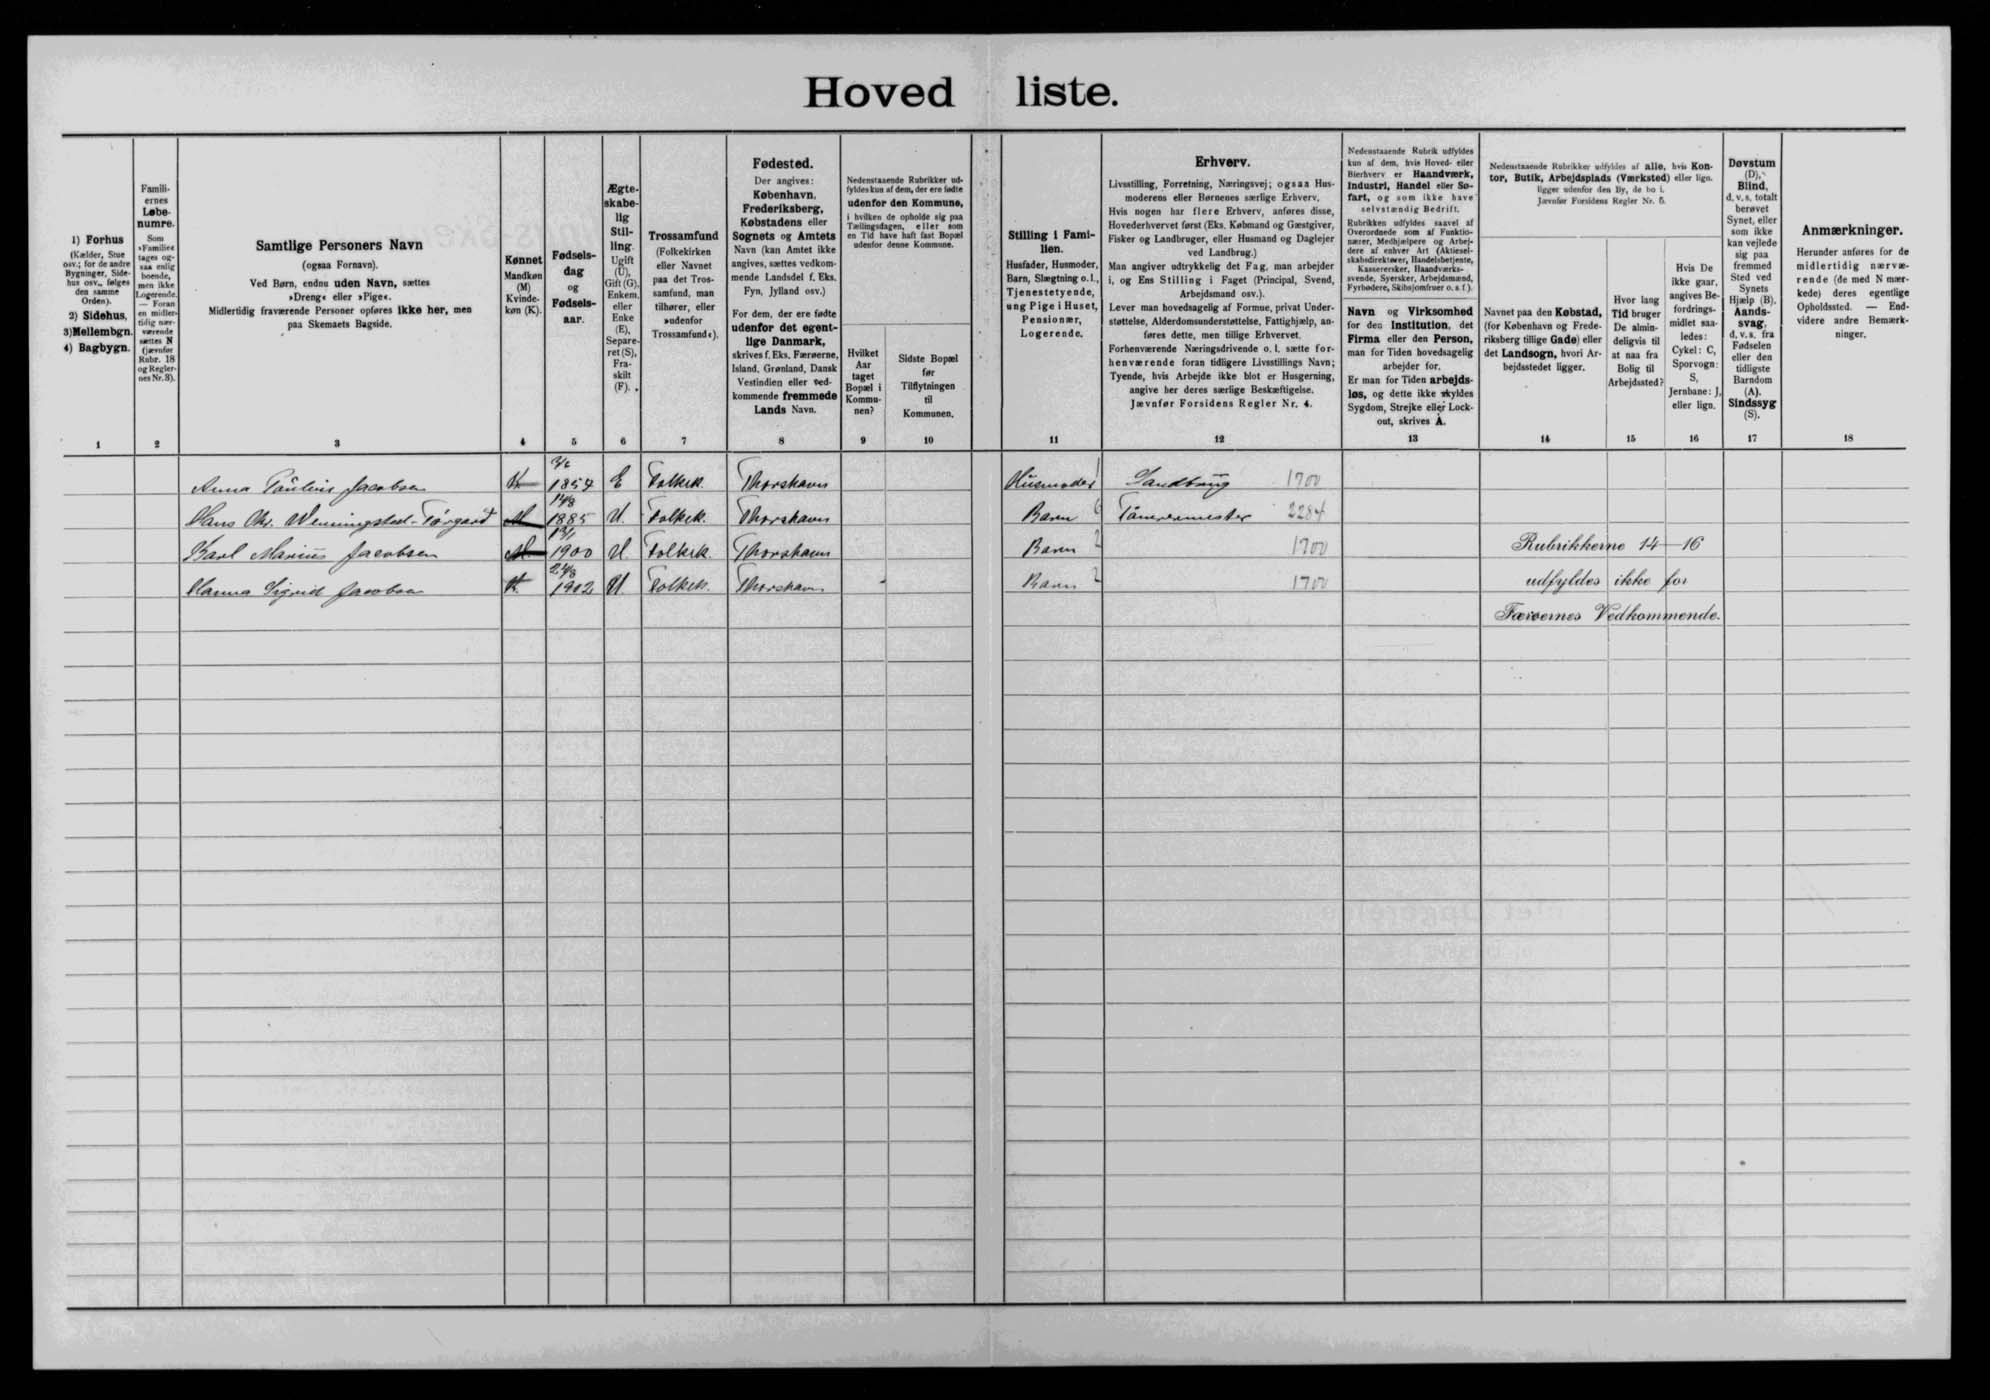 Hoved liste.
1) Forhus
(Kælder, Stue
osv.; for de andre
Bygninger, Side-
hus osv., følges
den samme
Orden).
2) Sidehus,
3) Mellembgn.
4) Bagbygn.
1
Famili-
ernes
Løbe-
numre.
Som
»Familie«
tages og-
saa enlig
boende,
men ikke
Logerende.
— Foran
en midler-
tidig nær-
værende
sættes N
(jævnfør
Rubr. 18
og Regler-
nes Nr. 8).
2
Samtlige Personers Navn
(ogsaa Fornavn).
Ved Børn, endnu uden Navn, sættes
»Dreng« eller »Pige«.
Midlertidig fraværende Personer opføres ikke her, men
paa Skemaets Bagside.
3
Kønnet
Mandkøn
(M)
Kvinde-
køn (K).
4
Fødsels-
dag
og
Fødsels-
aar.
5
Ægte-
skabe-
lig
Stil-
ling.
Ugift
(U),
Gift (G),
Enkem.
eller
Enke
(E),
Separe-
ret (S),
Fra-
skilt
(F).
6
Trossamfund
(Folkekirken
eller Navnet
paa det Tros-
samfund, man
tilhører, eller
»udenfor
Trossamfund«).
7
Fødested.
Der angives:
København,
Frederiksberg,
Købstadens eller
Sognets og Amtets
Navn (kan Amtet ikke
angives, sættes vedkom-
mende Landsdel f. Eks.
Fyn, Jylland osv.)
For dem, der ere fødte
udenfor det egent-
lige Danmark,
skrives f. Eks. Færøerne,
Island, Grønland, Dansk
Vestindien eller ved-
kommende fremmede
Lands Navn.
8
Nedenstaaende Rubrikker ud-
fyldes kun af dem, der ere fødte
udenfor den Kommune,
i hvilken de opholde sig paa
Tællingsdagen, eller som
en Tid have haft fast Bopæl
udenfor denne Kommune.
Hvilket
Aar
taget
Bopæl i
Kommu-
nen?
9
Sidste Bopæl
før
Tilflytningen
til
Kommunen.
10
Stilling i Fami-
lien.
Husfader, Husmoder,
Barn, Slægtning o.l.,
Tjenestetyende,
ung Pige i Huset,
Pensionær,
Logerende.
11
Erhverv.
Livsstilling, Forretning, Næringsvej; ogsaa Hus-
moderens eller Børnenes særlige Erhverv.
Hvis nogen har flere Erhverv, anføres disse,
Hovederhvervet først (Eks. Købmand og Gæstgiver,
Fisker og Landbruger, eller Husmand og Daglejer
ved Landbrug.)
Man angiver udtrykkelig det Fag, man arbejder
i, og Ens Stilling i Faget (Principal, Svend,
Arbejdsmand osv.).
Lever man hovedsagelig af Formue, privat Under-
støttelse, Alderdomsunderstøttelse, Fattighjælp, an-
føres dette, men tillige Erhvervet.
Forhenværende Næringsdrivende o. l. sætte for-
henværende foran tidligere Livsstillings Navn;
Tyende, hvis Arbejde ikke blot er Husgerning,
angive her deres særlige Beskæftigelse.
Jævnfør Forsidens Regler Nr. 4.
12
Nedenstaaende Rubrik udfyldes
kun af dem, hvis Hoved- eller
Bierhverv er Haandværk,
Industri, Handel eller Sø-
fart, og som ikke have
selvstændig Bedrift.
Rubrikken udfyldes saavel af
Overordnede som af Funktio-
nærer, Medhjælpere og Arbej-
dere af enhver Art (Aktiesel-
skabsdirektører, Handelsbetjente,
Kasserersker, Haandværks-
svende, Syersker, Arbejdsmænd,
Fyrbødere, Skibsjomfruer o. s. f.).
Navn og Virksomhed
for den Institution, det
Firma eller den Person,
man for Tiden hovedsagelig
arbejder for.
Er man for Tiden arbejds-
løs, og dette ikke skyldes
Sygdom, Strejke eller Lock-
out, skrives A.
13
Nedenstaaende Rubrikker udfyldes af alle, hvis Kon-
tor, Butik, Arbejdsplads (Værksted) eller lign.
ligger udenfor den By, de bo i.
Jævnfør Forsidens Regler Nr. 5.
Navnet paa den Købstad,
(for København og Frede-
riksberg tillige Gade) eller
det Landsogn, hvori Ar-
bejdsstedet ligger.
14
Hvor lang
Tid bruger
De almin-
deligvis til
at naa fra
Bolig til
Arbejdssted?
15
Hvis De
ikke gaar,
angives Be-
fordrings-
midlet saa-
ledes:
Cykel: C,
Sporvogn:
S,
Jernbane: J,
eller lign.
16
Døvstum
(D),
Blind,
d. v. s. totalt
berøvet
Synet, eller
som ikke
kan vejlede
sig paa
fremmed
Sted ved
Synets
Hjælp (B).
Aands-
svag,
d. v. s. fra
Fødselen
eller den
tidligste
Barndom
(A).
Sindssyg
(S).
17
Anmærkninger.
Herunder anføres for de
midlertidig nærvæ-
rende (de med N mær-
kede) deres egentlige
Opholdssted. — End-
videre andre Bemærk-
ninger.
18
Anna Jacobsen K 1854 E Folkek. Thorshavn Husmoder 1 Landbrug 1700
Hans Chr. Wenningsted-Tórgard M 14/8 1885 U. Folkek. Thorshavn Barn 6 Tömrermester 2284
Karl Marius Jacobsen M 1900 U. Folkek. Thorshavn Barn 2 1700
Hanna Sigrid Jacobsen K. 24/8 1902 U Folkek. Thorshavn Barn 2 1700
Rubrikkerne 14-16
udfyldes ikke for
Færøernes Vedkommende.